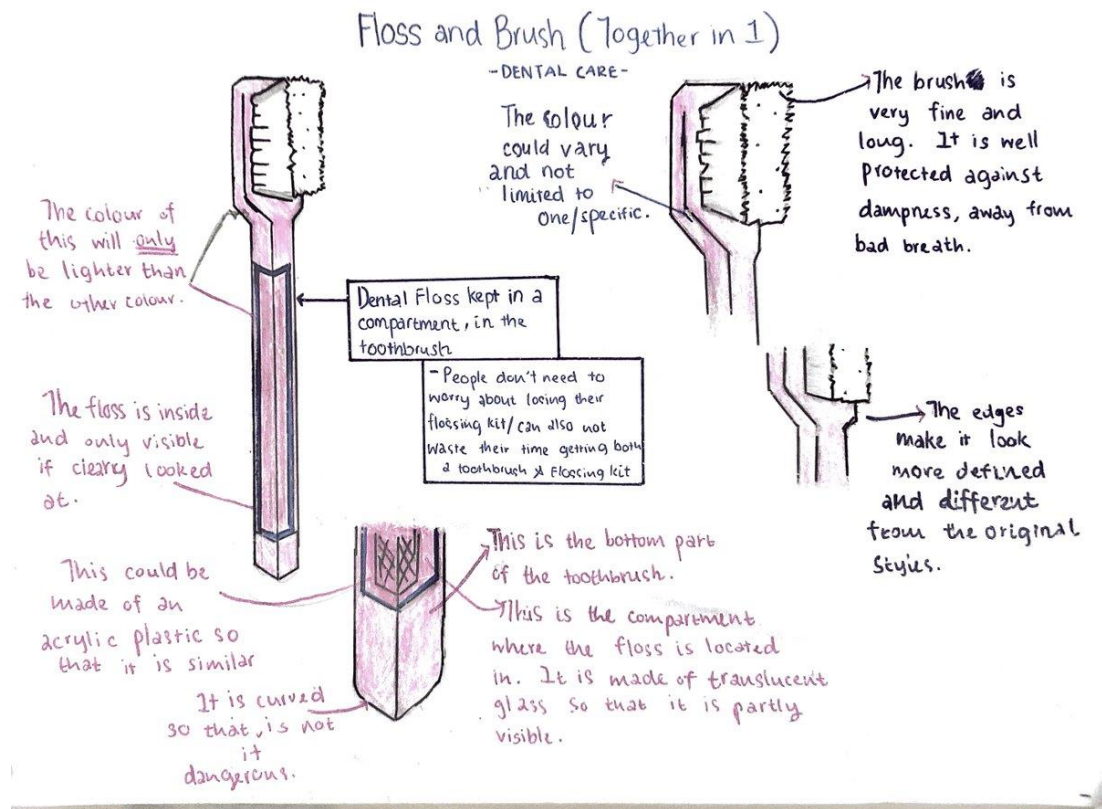 Floss and Brush (Together in 1)
-DENTAL CARE-
The colour
could vary
and not
limited to
one/specific.
The brush is
very fine and
long. It is well
protected against
dampness, away from
bad breath.
The colour of
this will only
be lighter than
the other colour.
Dental Floss kept in a
compartment, in the
toothbrush
- People don't need to
worry about losing their
flossing kit/can also not
waste their time getting both
a toothbrush & Flossing kit
The edges
make it look
more defined
and different
from the original
styles.
The floss is inside
and only visible
if cleary looked
at.
This could be
made of an
acrylic plastic so
that it is similar
It is curved
so that, is not
it
dangerous.
This is the bottom part
of the toothbrush.
This is the compartment
where the floss is located
in. It is made of translucent
glass so that it is partly
visible.